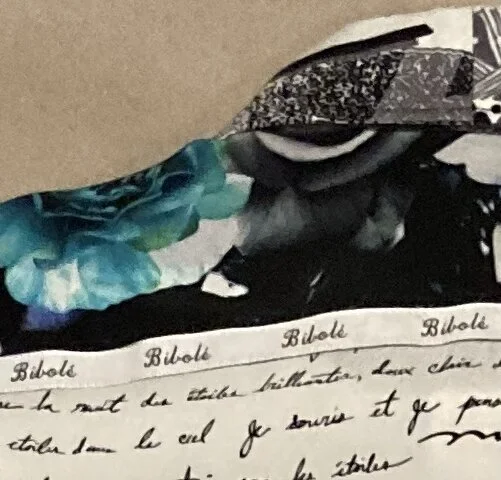 Bibolé Bibolé Bibolé Bibolé
la nuit des étoiles brillantes, doux clair
étoiles dans le ciel Je souris et je pens
les étoiles